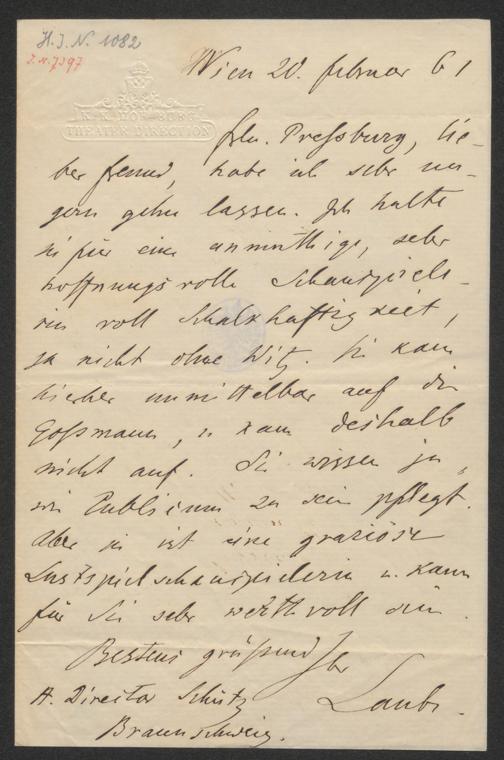 H. I. N. 1082
I. N. 7397
K. K. HOF-BURG-
THEATER DIRECTION
Wien 20. Februar 61
Frln. Preßburg, lie-
ber Freund, habe ich sehr un-
gern gehn lassen. Ich halte
sie für eine anmuthige, sehr
hoffnungsvolle Schauspiele-
rin voll Schalkhaftigkeit,
ja nicht ohne Witz. Sie kam
hierher unmittelbar auf die
Goßmann, u kam deshalb
nicht auf. Sie wissen ja,
wie Publicum zu sein pflegt.
Aber sie ist eine graziöse
Lustspielschauspielerin u. kann
für Sie sehr werthvoll sein.
Bestens grüßend Ihr
Laube.
H. Director Schütz
Braunschweig.